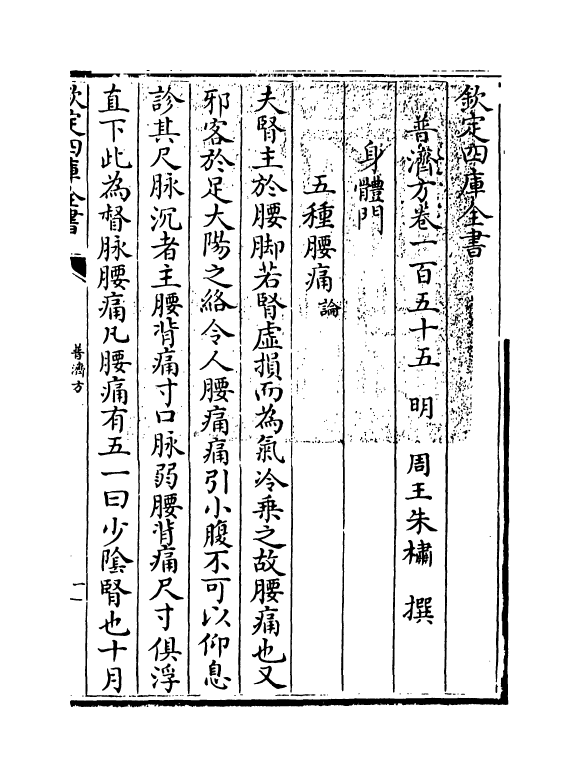 欽定四庫全書
普濟方卷一百五十五　明　周王朱橚　撰
身體門
五種腰痛論
夫腎主於腰脚若腎虛損而為氣冷乗之故腰痛也又
邪客於足大陽之絡令人腰痛痛引小腹不可以仰息
診其尺脉沉者主腰背痛寸口脉弱腰背痛尺寸俱浮
直下此為督脉腰痛凡腰痛有五一曰少隂腎也十月
欽定四庫全書
普濟方
一